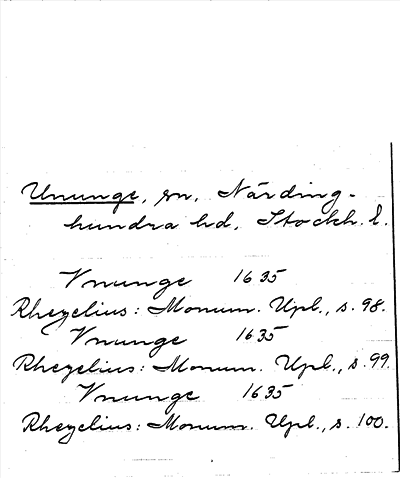 Ununge, sn, Närding-
hundra hd, Stockh. l.
Vnunge 1635
Rhezelius: Monum. Upl., s. 98.
Vnunge 1635
Rhezelius: Monum. Upl., s. 99.
Vnunge 1635
Rhezelius: Monum. Upl., s. 100.